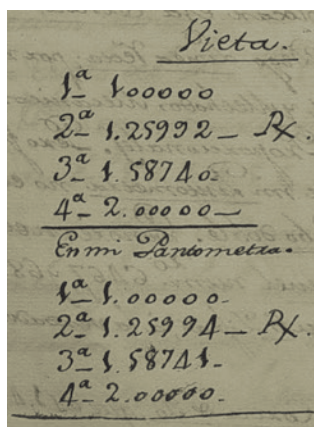 Vieta.
1ª 100000
2ª 1.25992_ Rx.
3ª 1.58740.
4ª 2.00000_
En mi Pantometra.
1ª 1.00000.
2ª 1.25994_ Rx.
3ª 1.58741.
4ª 2.00000.